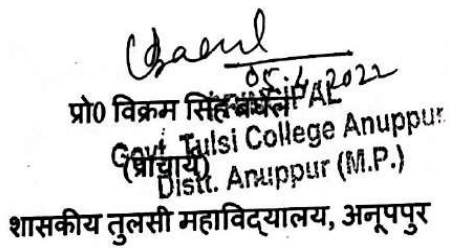 05.4.2022
प्रो0 विक्रम सिंह बघेल
PRINCIPAL
Govt. Tulsi College Anuppur
(प्राचार्य)
Distt. Anuppur (M.P.)
शासकीय तुलसी महाविद्यालय, अनूपपुर